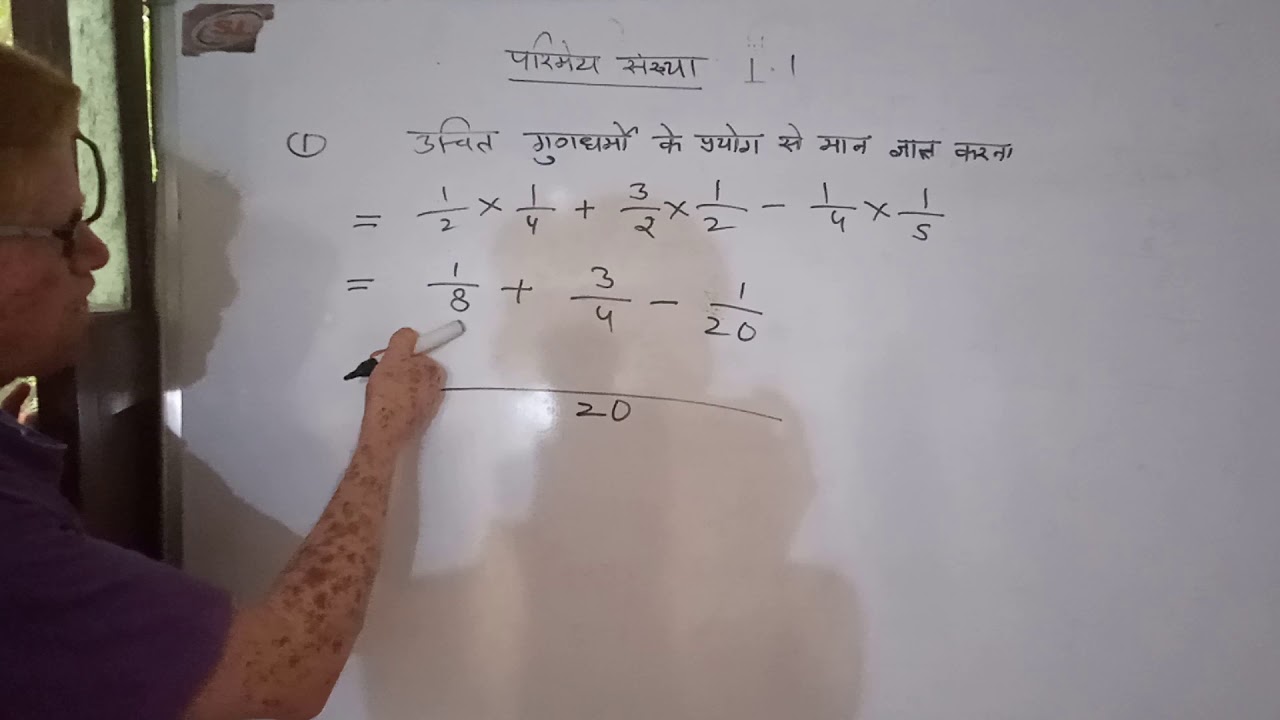 परिमेय संख्या 1.1
① उचित गुणधर्मों के प्रयोग से मान ज्ञात करना
= 1/2 × 1/4 + 3/2 × 1/2 - 1/4 × 1/5
= 1/8 + 3/4 - 1/20
20